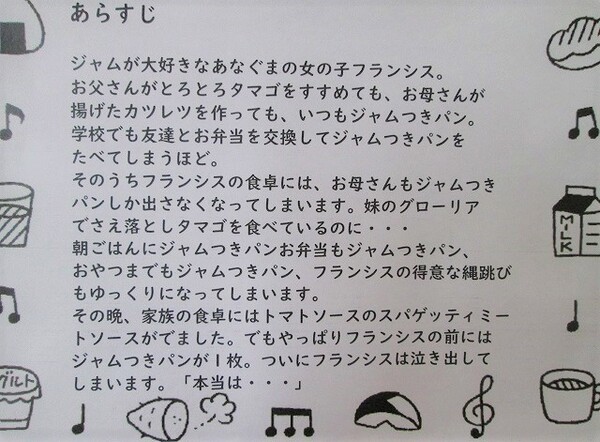 あらすじ
ジャムが大好きなあなぐまの女の子フランシス。
お父さんがとろとろタマゴをすすめても、お母さんが
揚げたカツレツを作っても、いつもジャムつきパン。
学校でも友達とお弁当を交換してジャムつきパンを
たべてしまうほど。
そのうちフランシスの食卓には、お母さんもジャムつき
パンしか出さなくなってしまいます。妹のグローリア
でさえ落としタマゴを食べているのに・・・
朝ごはんにジャムつきパンお弁当もジャムつきパン、
おやつまでもジャムつきパン、フランシスの得意な縄跳び
もゆっくりになってしまいます。
その晩、家族の食卓にはトマトソースのスパゲッティミー
トソースがでました。でもやっぱりフランシスの前には
ジャムつきパンが1枚。ついにフランシスは泣き出して
しまいます。「本当は・・・」
MILK
グルト